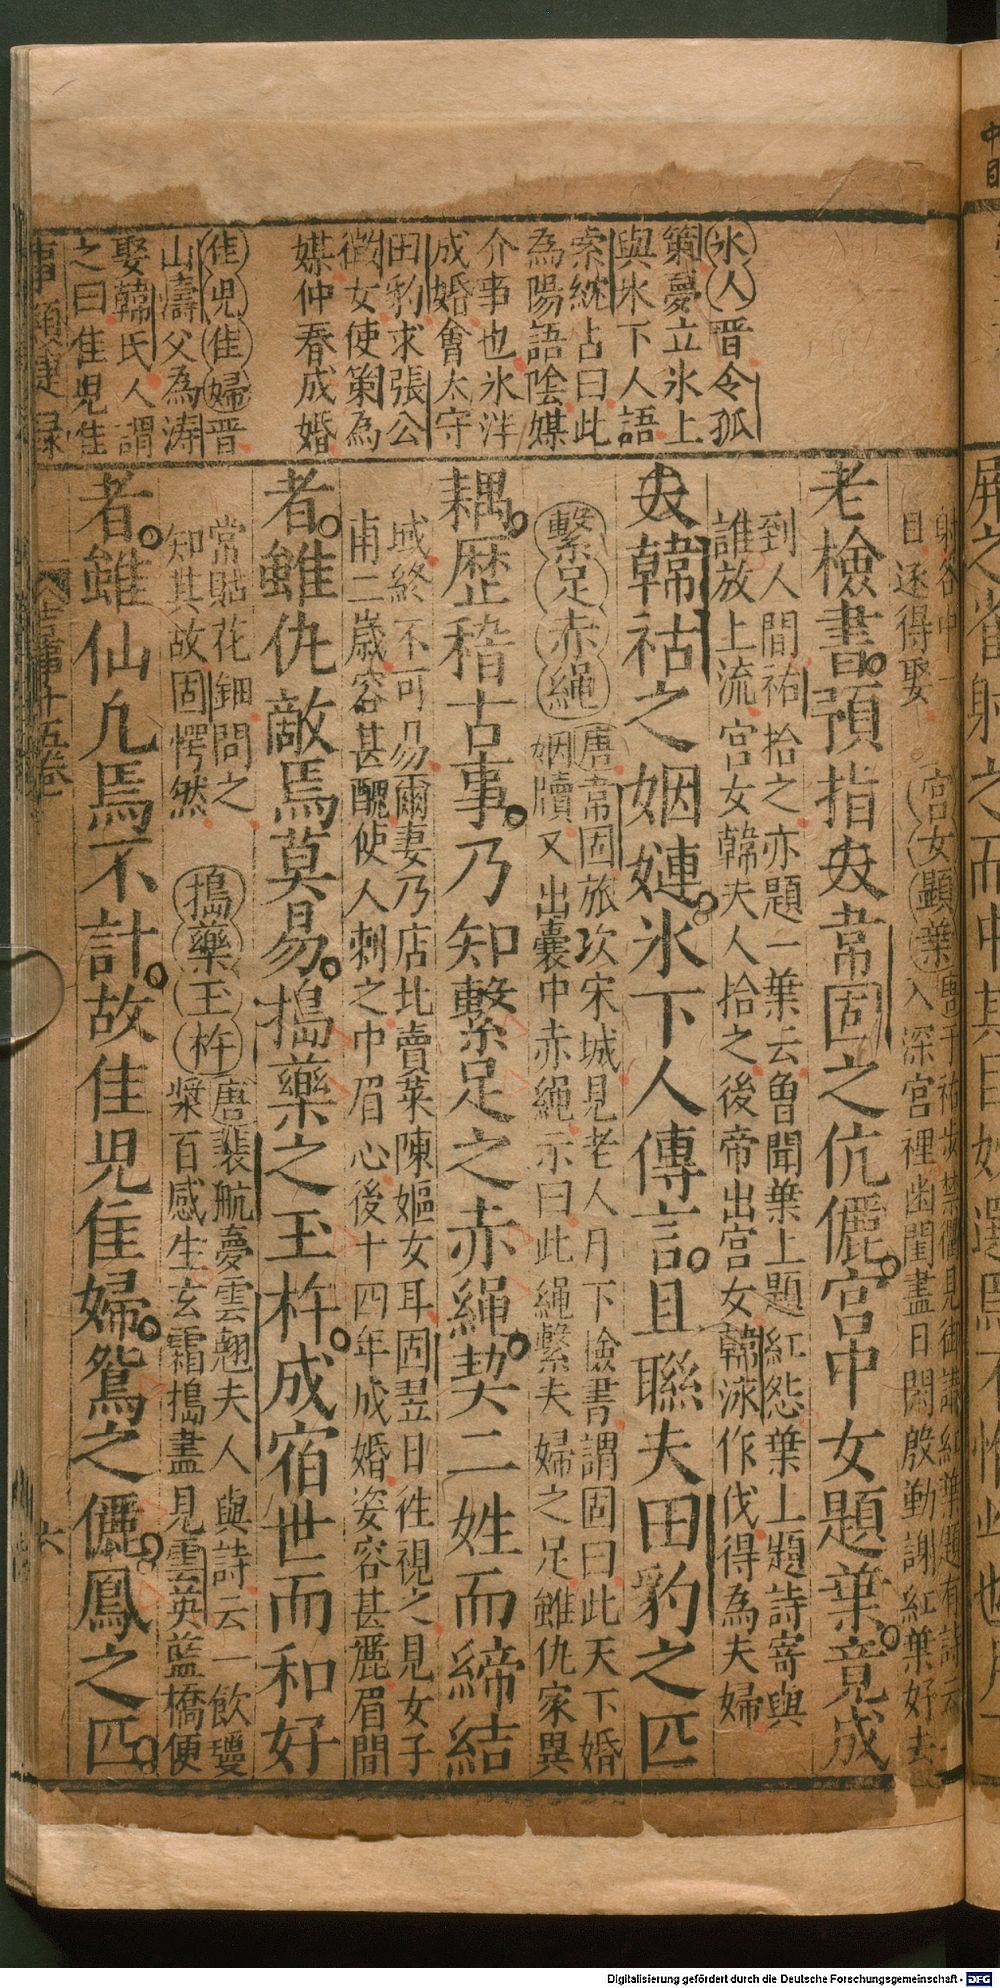 氷人晋令狐
策夢立氷上
與氷下人語
索紞占曰此
為陽語陰媒
介事也氷泮
成婚會太守
田豹求張公
徵女使策為
媒仲春成婚
佳兒佳婦晋
山濤父為濤
娶韓氏人謂
之曰佳兒佳
目遂得娶 宮女題葉 入深宮裡凾閨盡日閑殷勤謝紅葉好去
老檢書預指㚢韋固之伉儷宮中女題葉竟成
到人間祐拾之亦題一葉云魯聞葉上題紅怨葉上題詩寄與
誰放上流宮女韓夫人拾之後帝出宮女韓泳作伐得為夫婦
㚢韓祜之姻連氷下人傳言且聯夫田豹之匹
繫足赤繩 唐韋固旅次宋城見老人月下檢書謂固曰此天下婚
姻牘又出囊中赤繩示曰此繩繫夫婦之足雖仇家異
耦歷稽古事乃知繫足之赤繩契二姓而締結
域終不可易爾妻乃店北賣菜陳嫗女耳固翌日徃視之見女子
甫二歲容甚醜使人刺之巾眉心後十四年成婚姿容甚麗眉間
者雖仇敵焉莫易搗藥之玉杵成宿世而和好
常貼花鈿問之
知其故固愕然 搗藥玉杵 唐裴航夢雲翹夫人與詩云一飲瓊
漿百感生玄霜搗盡見雲英藍橋便
者雖仙凡焉不計故佳兒佳婦鴛之儷鳳之匹
六
中
Digitalisierung gefördert durch die Deutsche Forschungsgemeinschaft - DFG